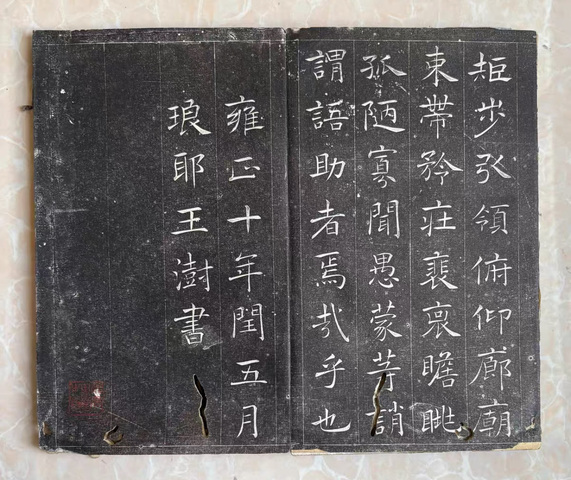 矩步引領俯仰廊廟
束帶矜莊裵褱瞻眺
孤陋寡聞愚蒙等誚
謂語助者焉哉乎也
雍正十年閏五月
琅耶王澍書